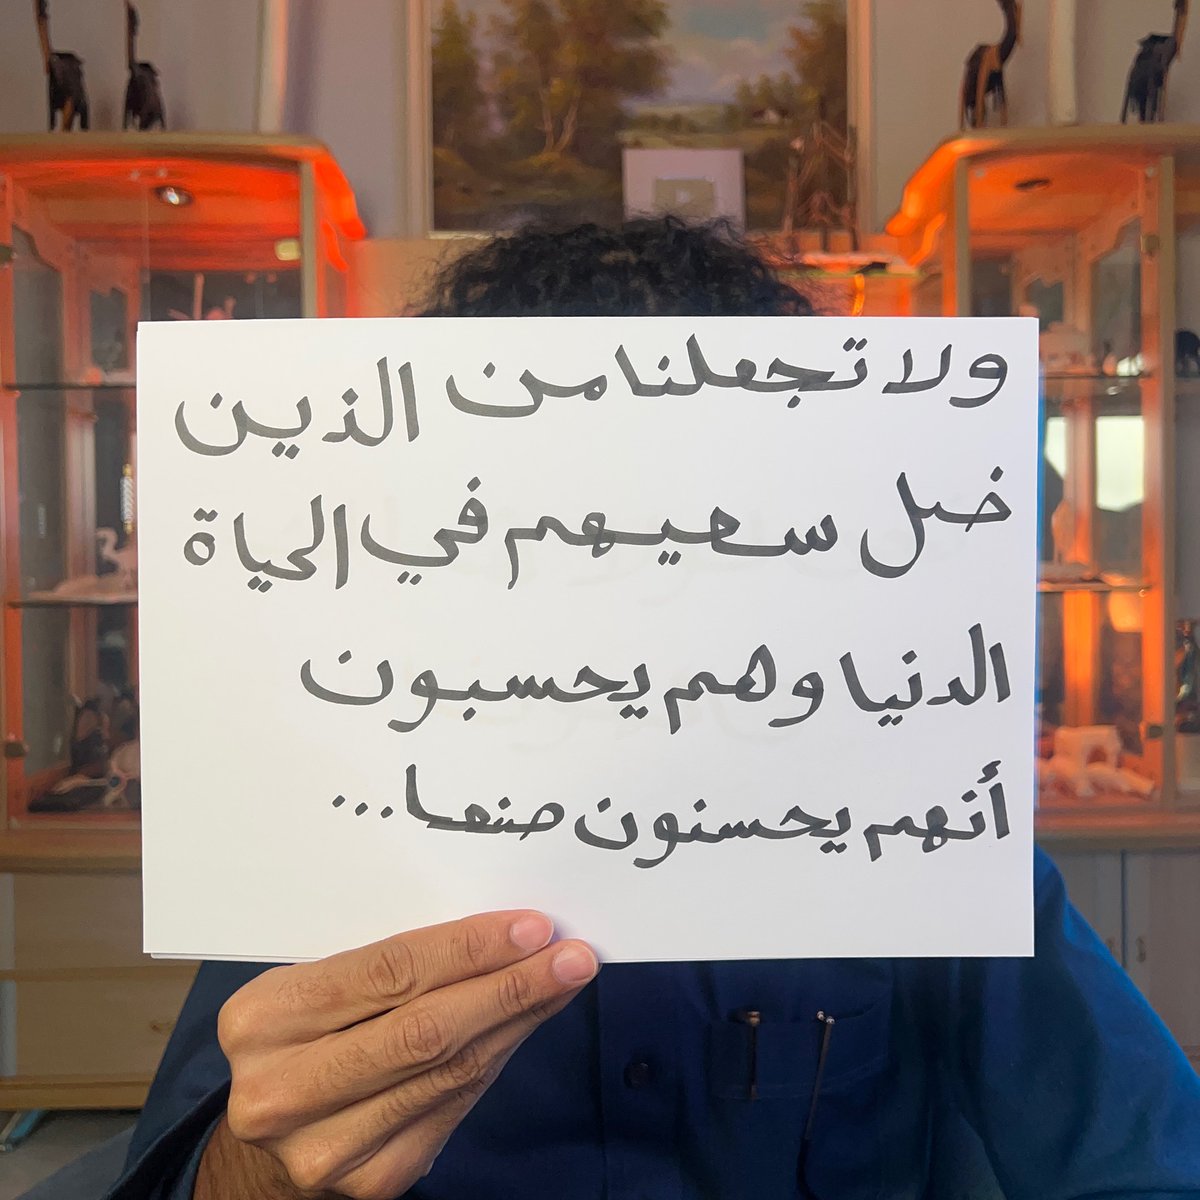 ولا تجعلنا من الذين
ضل سعيهم في الحياة
الدنيا وهم يحسبون
أنهم يحسنون صنعا...